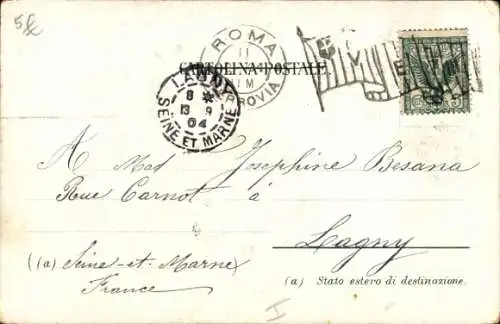 5
ROMA
11
M
FERROVIA
CARTOLINA POSTALE
LAGNY
8 *
13 9
04
SEINE ET MARNE
A Mad Josephine Besana
Rue Carnot à
Lagny
(a) Seine-et-Marne
France
(a) Stato estero di destinazione.
I